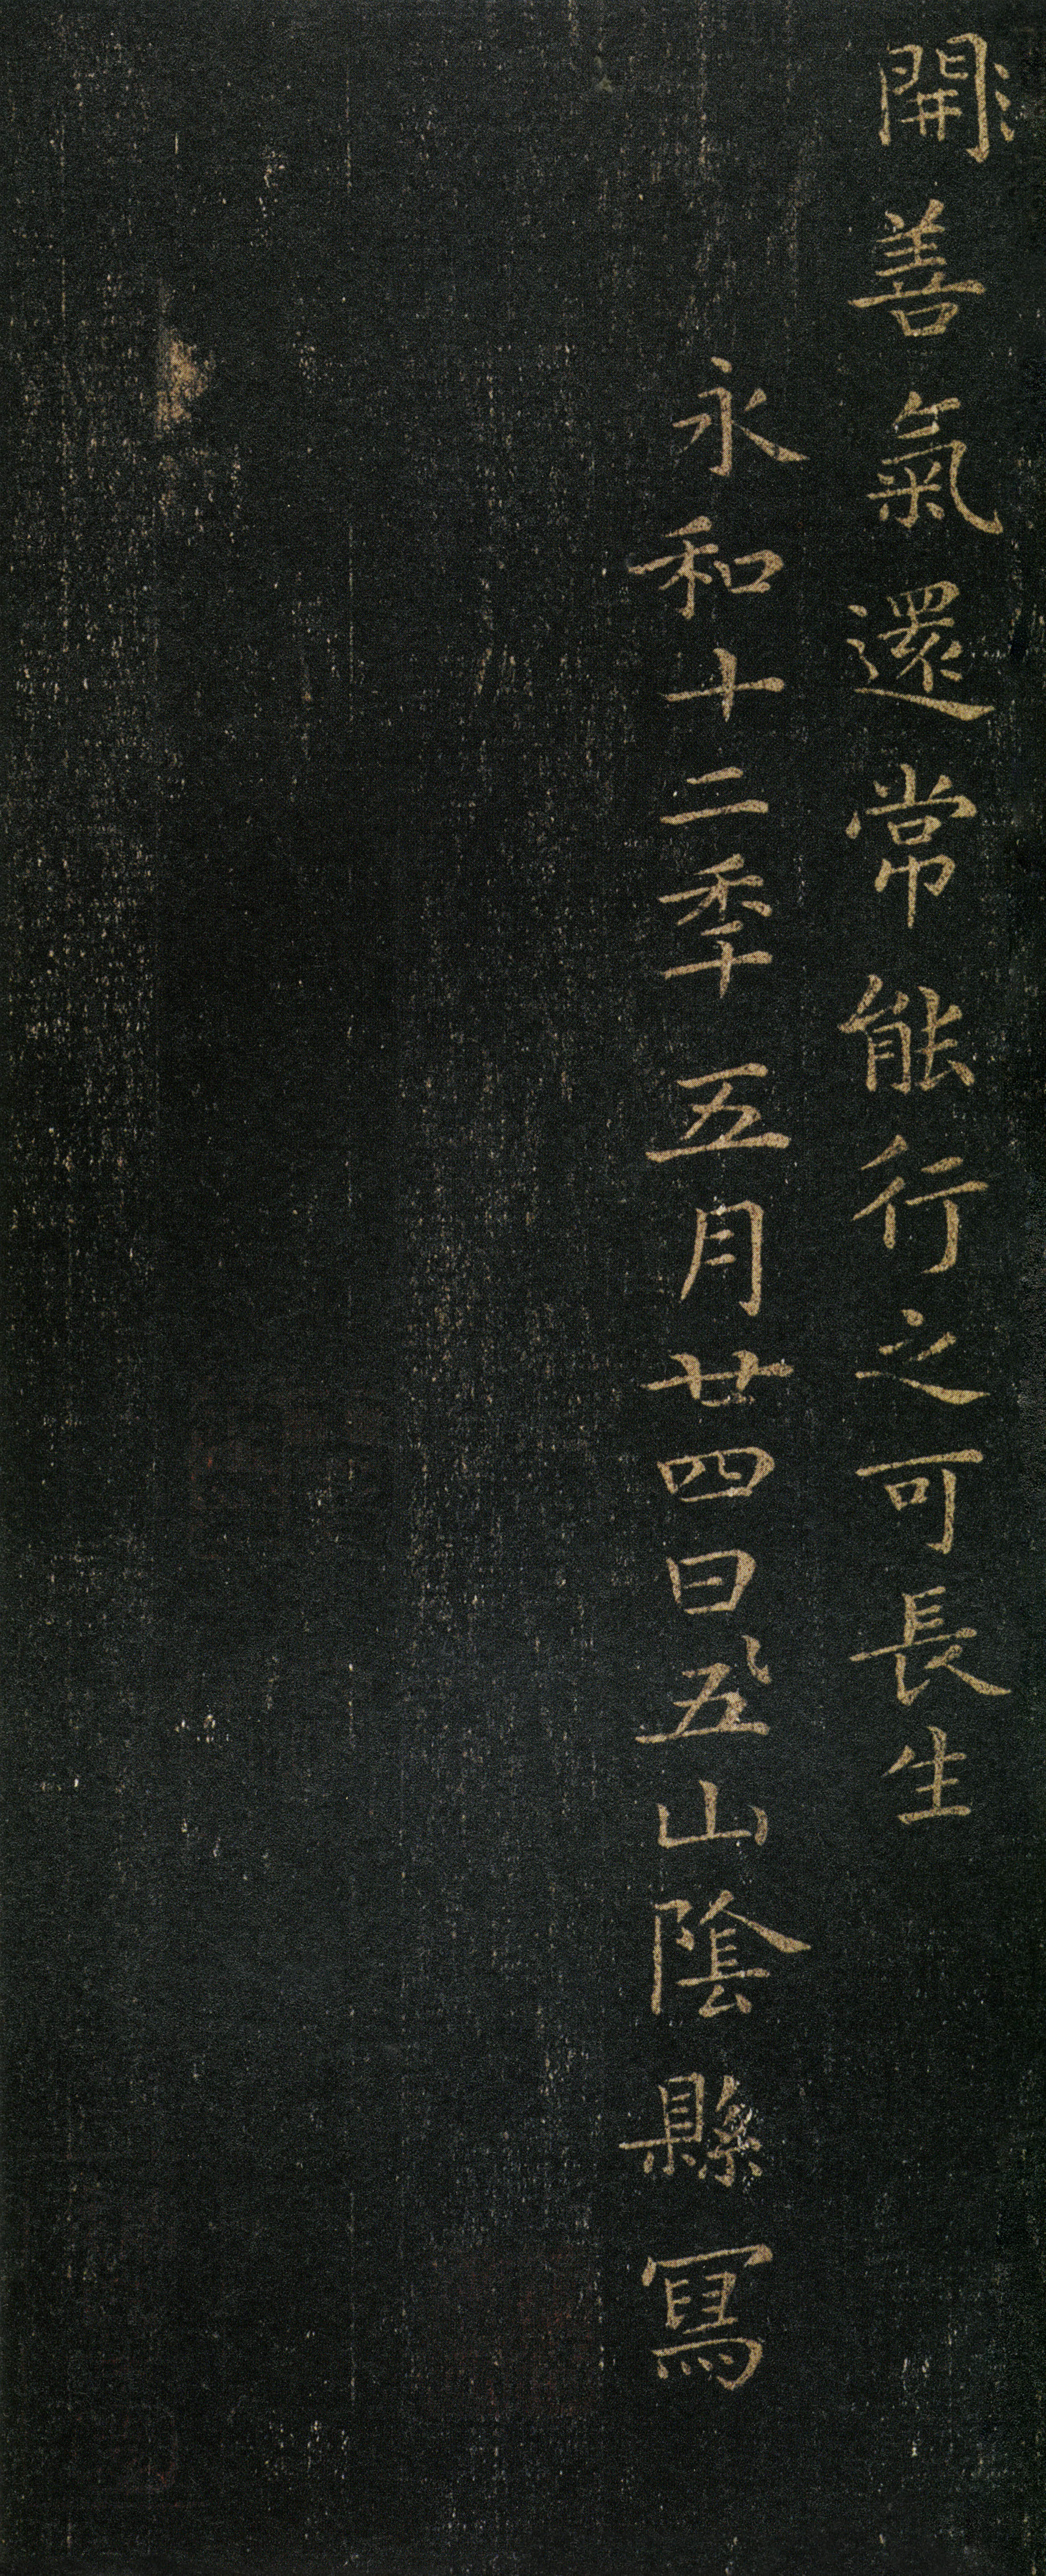 開善氣還常能行之可長生
永和十二秊五月廿四日五山隂縣冩